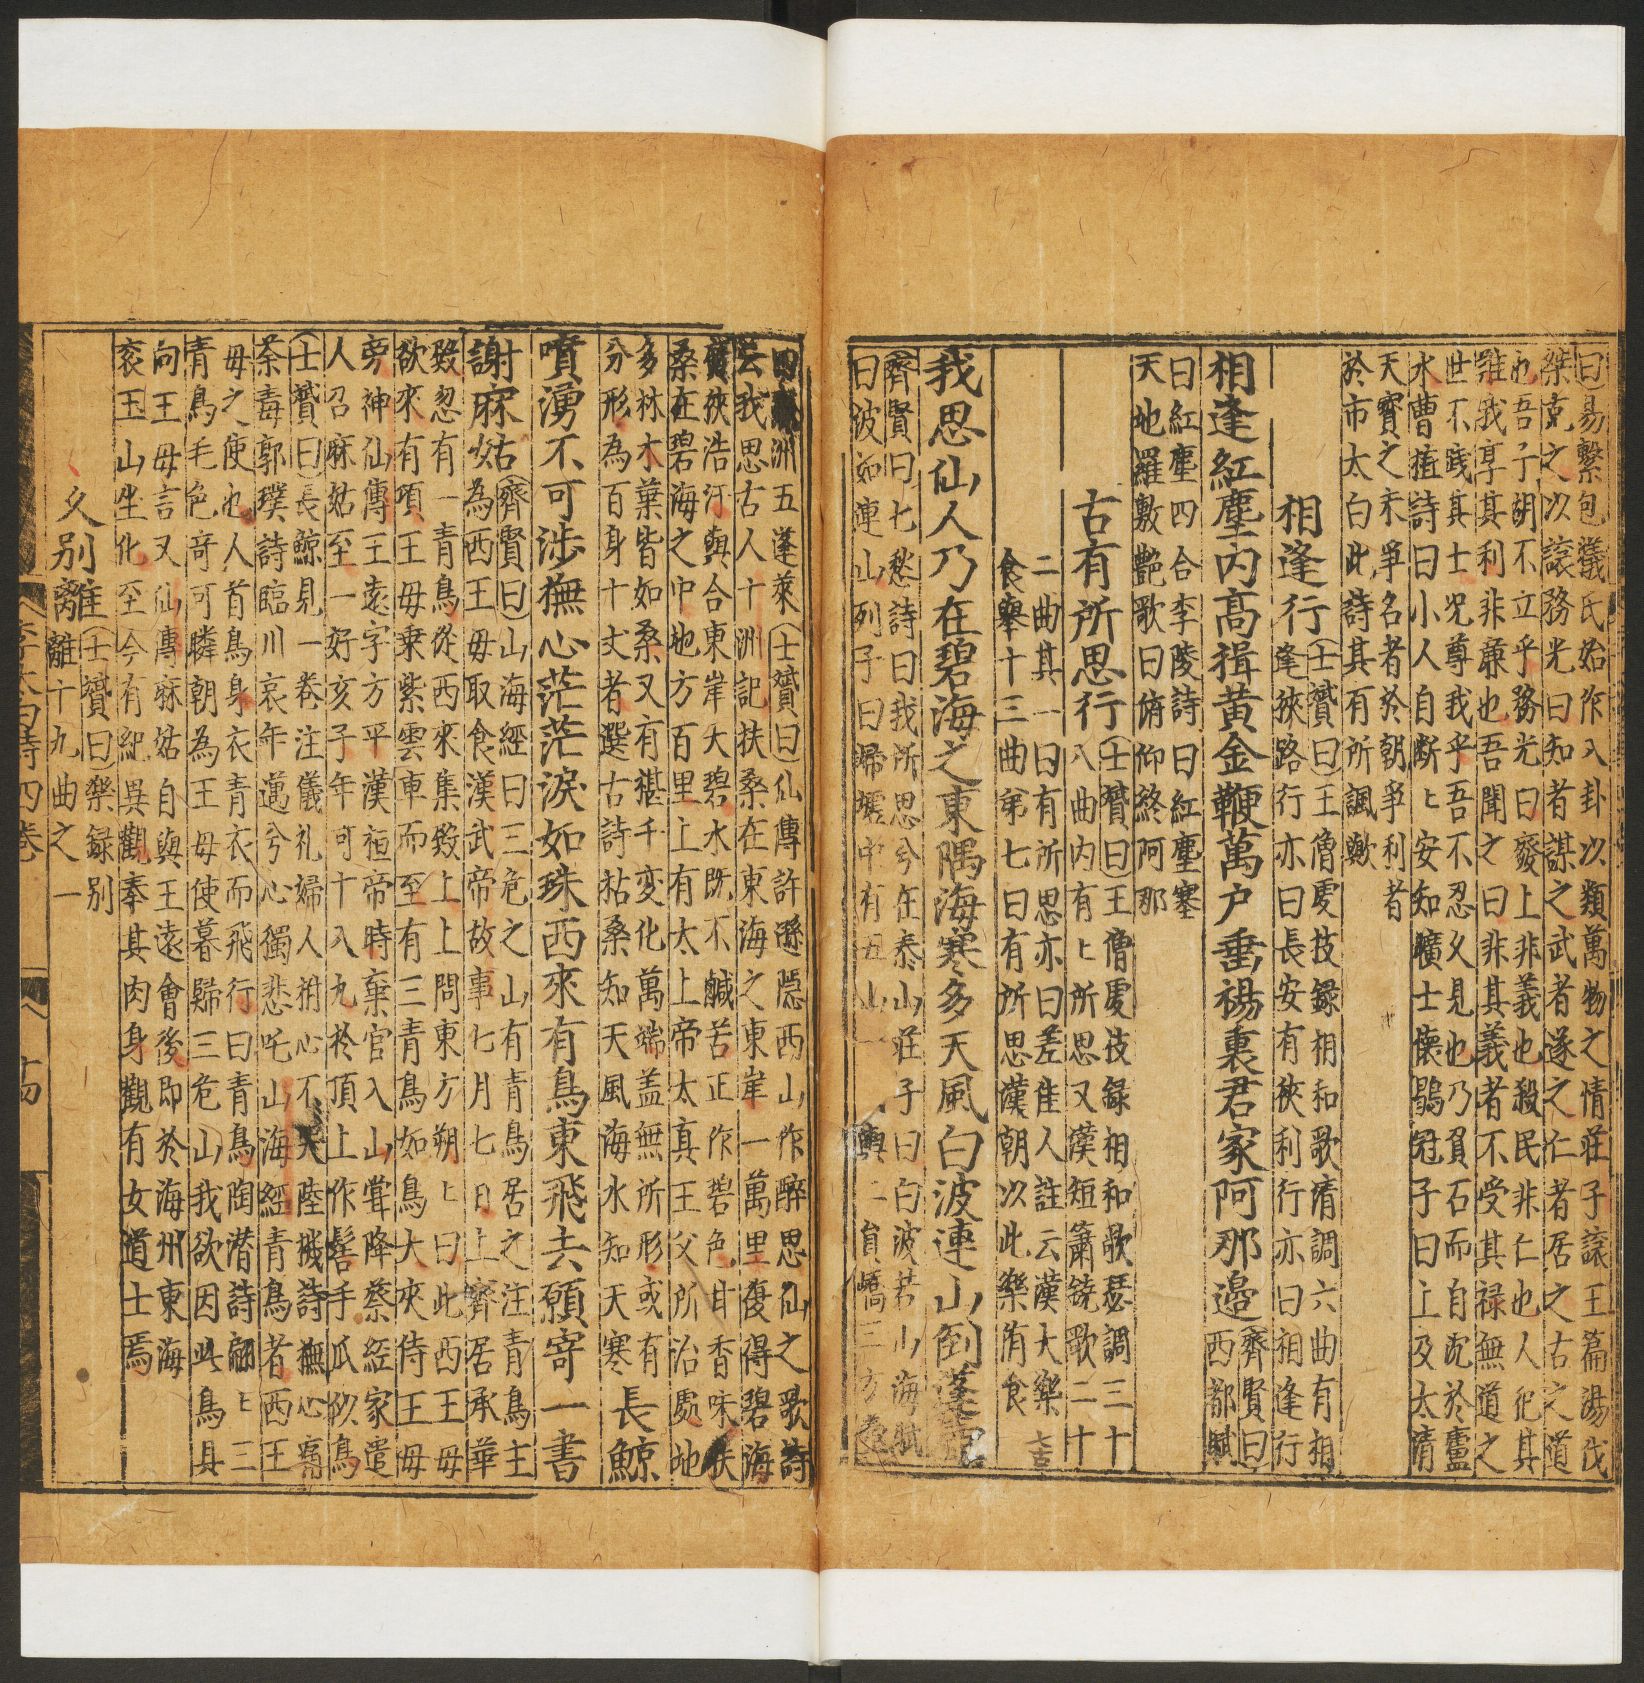 曰易繫包犧氏始作八卦以類萬物之情莊子讓王篇湯伐
桀克之以讓務光曰知者謀之武者遂之仁者居之古之道
也吾子胡不立乎務光曰廢上非義也殺民非仁也人犯其
難我享其利非廉也吾聞之曰非其義者不受其祿無道之
世不踐其土况尊我乎吾不忍久見也乃負石而自沉於廬
水曹植詩曰小人自齗ヒ安知曠士懷鶡冠子曰上及太清
天寶之末爭名者於朝爭利者
於市太白此詩其有所諷歟
相逢行
士贇曰王僧虔技録相和歌清調六曲有相
逢狹路行亦曰長安有狹利行亦曰相逢行
相逢紅塵内高揖黄金鞭萬户垂楊裏君家阿那邉
齊賢曰
西都賦
曰紅塵四合李陵詩曰紅塵塞
天地羅敷艷歌曰俯仰終阿那
古有所思行
士贇曰王僧虔技録相和歌瑟調三十
八曲内有ヒ所思又漢短簫鐃歌二十
二曲其一曰有所思亦曰差隹人註云漢大樂
食舉十三曲第七曰有所思漢朝以此樂侑食
我思仙人乃在碧海之東隅海寒多天風白波連山倒蓬壺
齊賢曰七愁詩曰我所思兮在泰山莊子曰白波若山海賦
曰波如連山列子曰歸墟中有五山一 輿二員嶠三方壺
洲五蓬萊士贇曰仙傳許遜隠西山作醉思仙之歌詩
云我思古人十洲記扶桑在東海之東岸一萬里復得碧海
廣狹浩汗與合東岸大碧水既不鹹苦正作碧色甘香味扶
桑在碧海之中地方百里上有太上帝太真王父所治處地
多林木葉皆如桑又有椹千变化萬端盖無所形或有
分形為百身十丈者選古詩枯桑知天風海水知天寒
長鯨
噴湧不可涉撫心茫茫淚如珠西來有鳥東飛去願寄一書
謝麻姑
齊賢曰山海經曰三危之山有青鳥居之注青鳥主
為西王毋取食漢武帝故事七月七日上齊居承華
殿忽有一青鳥從西來集殿上上問東方朔ヒ曰此西王毋
欲來有頃王毋乗紫雲車而至有三青鳥如鳥大夾侍王毋
旁神仙傳王遠字方平漢桓帝時棄官入山甞降蔡經家遣
人召麻姑至一好亥子年可十八九於頂上作髻手瓜似鳥
士贇曰長鯨見一卷注儀礼婦人拊心不哭陸機詩撫心痛
荼毒郭璞詩臨川哀年邁兮心獨悲吒山海經青鳥者西王
毋之使也人首鳥身衣青衣而飛行曰青鳥陶潜詩翩ヒ三
青鳥毛色竒可隣朝為王毋使暮歸三危山我欲因此鳥具
向王毋言又仙傳麻姑自與王遠會後即於海州東海
衮玉山坐化至今有紀異觀奉其肉身觀有女道士焉
乆别離
士贇曰樂録别
離十九曲之一
李太白詩四卷
十四